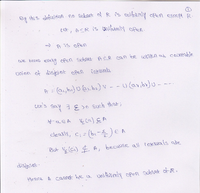 ①
By this definition no subset of ℝ is uniformly open except ℝ.
Let, A⊂ℝ is uniformly open.
⇒ A is open
we know every open subset A⊂ℝ can be written as countable
union of disjoint open intervals
A = (a₁, b₁) ∪ (a₂, b₂) ∪ ... ∪ (aₙ, bₙ) ∪ ...
Let's say ∃ Σ>0 such that,
(Σ) ⊆ A
clearly, ∈ A
But ⊄ A, because all intervals are
disjoint.
Hence A cannot be a uniformly open subset of ℝ.